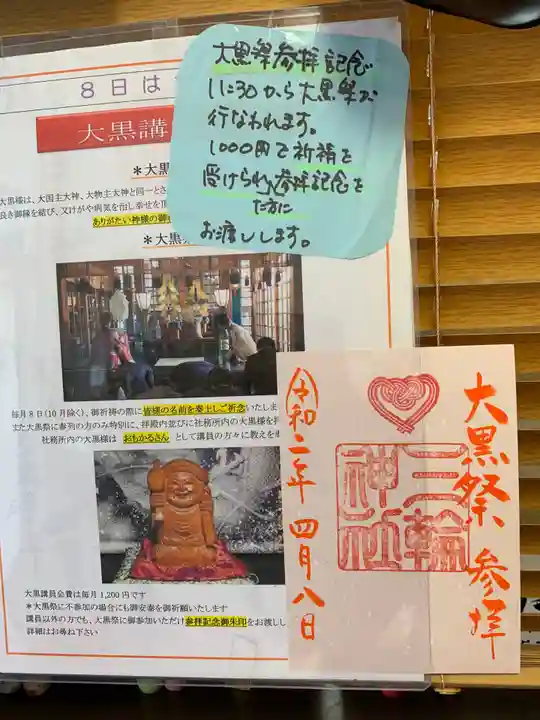 大黒祭参拝記念
11:30から大黒祭が
行なわれます。
1000円で祈祷を
受けられた方に参拝記念を
お渡しします。
8日は
大黒講
*大黒
大黒様は、大国主大神、大物主大神と同一とさ
良き御縁を結び、又けがや病気を治し幸せを
ありがたい神様の御
*大黒
毎月8日(10月除く)、御祈祷の際に皆様の名前を奏上しご祈念いたしま
また大黒祭に参列の方のみ特別に、拝殿内並びに社務所内の大黒様を
社務所内の大黒様は おもかるさん として講員の方々に教えを
大黒講員会費は毎月1,200円です
*大黒祭に不参加の場合にも御安泰を御祈願いたします
講員以外の方でも、大黒祭に御参加いただけ参拝記念御朱印をお渡しし
詳細はお尋ね下さい
大黒祭 参拝
三輪
神社
令和二年 四月八日